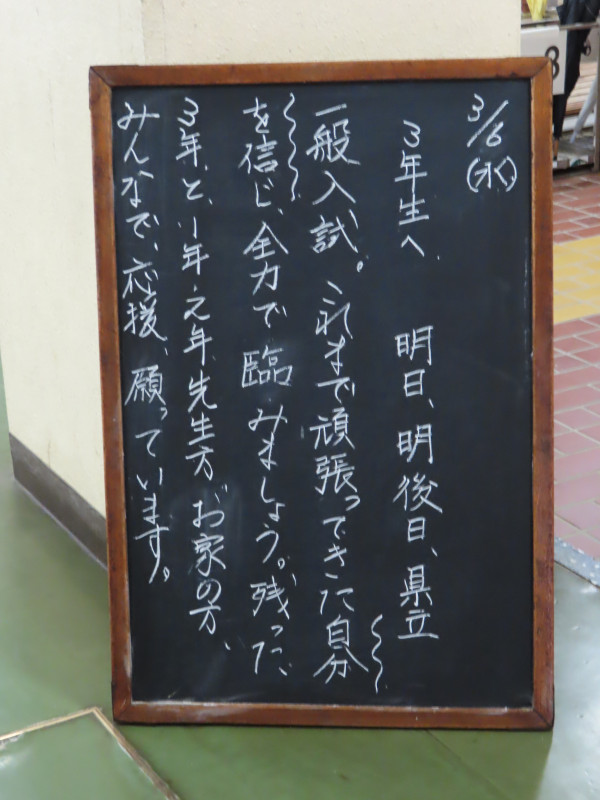 3/6(水)
3年生へ 明日、明後日、県立
一般入試。これまで頑張ってきた自分
を信じ、全力で臨みましょう。残った
3年と、1年、2年、先生方、お家の方、
みんなで、応援、願っています。
8